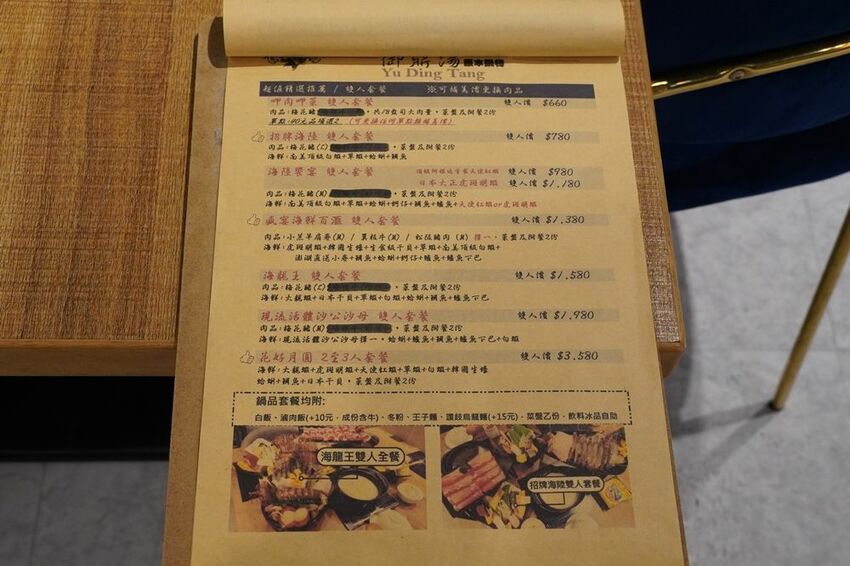 御鼎湯 鴛本鍋物
Yu Ding Tang
超值精選推薦 / 雙人套餐 ※可補差價更換肉品
呷肉呷菜 雙人套餐 雙人價 $660
肉品:梅花豬 ,共18盎司大肉量,菜盤及附餐2份
招牌海陸 雙人套餐 雙人價 $780
肉品:梅花豬(L) ,菜盤及附餐2份
海鮮:南美頂級白蝦+草蝦+蛤蜊+鯛魚
海陸饗宴 雙人套餐 雙人價 $980
日本大正虎斑明蝦 雙人價 $1,180
肉品:梅花豬(M) ,菜盤及附餐2份
海鮮:南美頂級白蝦+草蝦+蛤蜊+蚵仔+鯛魚+鱸魚+天使紅蝦or虎斑明蝦
盛宴海鮮百滙 雙人套餐 雙人價 $1,380
肉品:小羔羊肩卷(M) / 翼板牛(M) / 松阪豬肉 (M) 擇一,菜盤及附餐2份
海鮮:虎斑明蝦+韓國生蠔+生食級干貝+草蝦+南美頂級白蝦+
澎湖直送小卷+鯛魚+蛤蜊+蚵仔+鱸魚+鱸魚下巴
海龍王 雙人套餐 雙人價 $1,580
肉品:梅花豬(L) ,菜盤及附餐2份
海鮮:大龍蝦+日本干貝+草蝦+白蝦+蛤蜊+鯛魚+鱸魚下巴
現流活體沙公沙母 雙人套餐 雙人價 $1,980
肉品:梅花豬(M) ,菜盤及附餐2份
海鮮:現流活體沙公沙母擇一,蛤蜊+鱸魚+鯛魚+鱸魚下巴+白蝦
花好月圓 2至3人套餐 雙人價 $3,580
海鮮:大龍蝦+虎斑明蝦+天使紅蝦+草蝦+白蝦+韓國生蠔
蛤蜊+鯛魚+日本干貝,菜盤及附餐2份
鍋品套餐均附:
白飯、滷肉飯(+10元,成份含牛)、冬粉、王子麵、讚歧烏龍麵(+15元)、菜盤乙份、飲料冰品自助
海龍王雙人全餐
招牌海陸雙人套餐